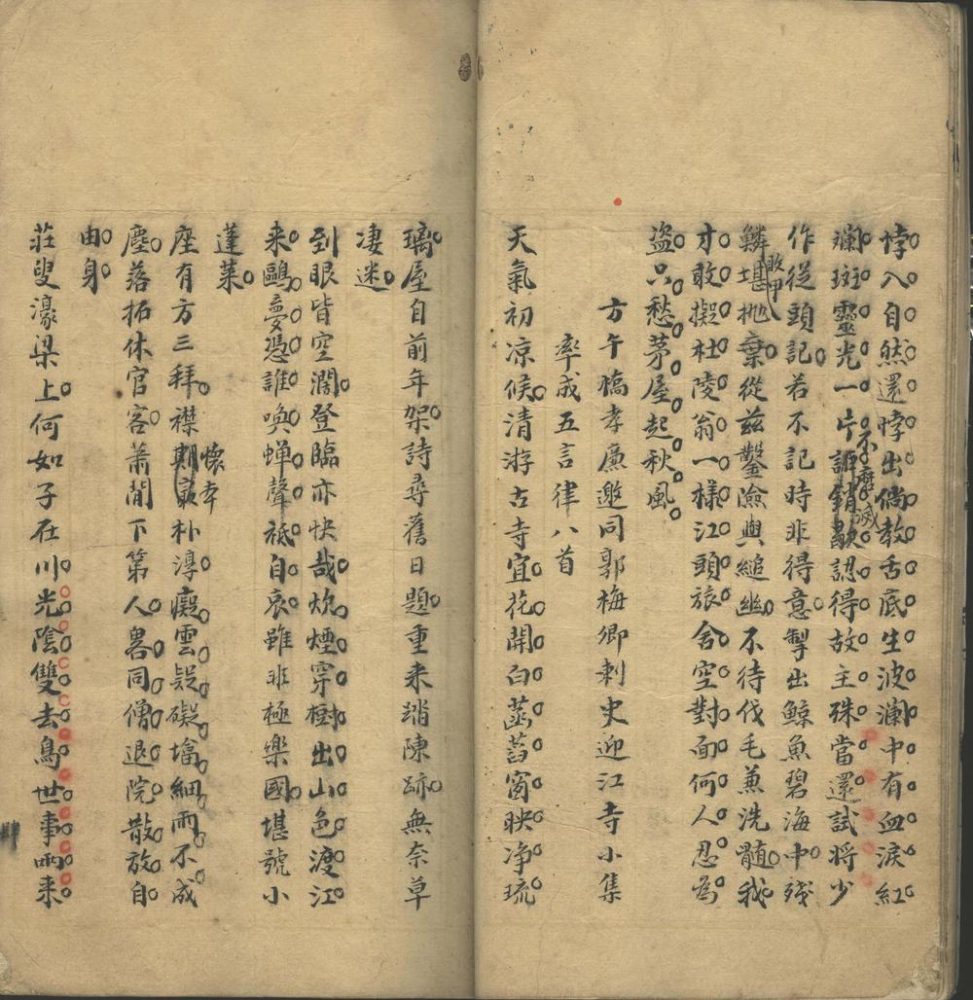 悖入自然還悖出倘教舌底生波瀾中有血淚紅
斕斑靈光一片詎銷歇認得故主珠當還試将少
不磨滅
作從頭記若不記時非得意掣出鲸魚碧海中殘
鱗堪抛棄從兹鑿險與縋幽不待伐毛兼洗髓我
敗甲
才敢擬杜陵翁一樣江頭旅舍空對面何人忍為
盗只愁茅屋起秋風
方午橋孝廉邀同郭梅卿刺史迎江寺小集
率成五言律八首
天氣初凉候清游古寺宜花開白菡萏窗映净琉
璃屋自前年架詩尋舊日題重来踏陳跡無奈草
凄迷
到眼皆空濶登臨亦快哉炊煙穿樹出山色渡江
来鷗夢憑誰喚蝉聲祇自哀雖非極樂國堪號小
蓬萊
座有方三拜襟期最朴淳癡雲疑礙墖細雨不成
懷本
塵落拓休官客蕭閒下第人畧同僧退院散放自
由身
莊叟濠梁上何如子在川光陰雙去鳥世事兩来